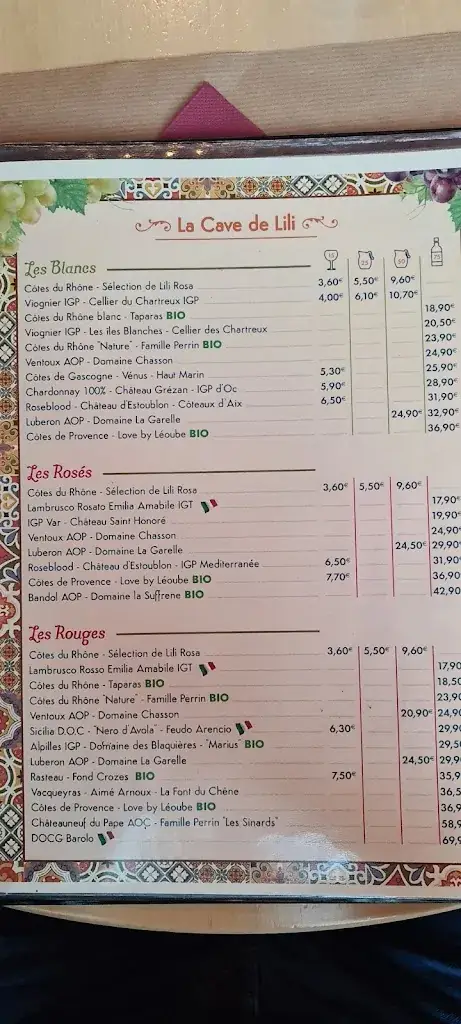 La Cave de Lili
Les Blancs 15 25 50 75
Côtes du Rhône - Sélection de Lili Rosa 3,60€ 5,50€ 9,60€
Viognier IGP - Cellier du Chartreux IGP 4,00€ 6,10€ 10,70€
Côtes du Rhône blanc - Taparas BIO 18,90€
Viognier IGP - Les îles Blanches - Cellier des Chartreux 20,50€
Côtes du Rhône "Nature" - Famille Perrin BIO 23,90€
Ventoux AOP - Domaine Chasson 24,90€
Côtes de Gascogne - Vénus - Haut Marin 5,30€ 25,90€
Chardonnay 100% - Château Grézan - IGP d'Oc 5,90€ 28,90€
Roseblood - Château d'Estoublon - Côteaux d'Aix 6,50€ 31,90€
Luberon AOP - Domaine La Garelle 24,90€ 32,90€
Côtes de Provence - Love by Léoube BIO 36,90€
Les Rosés
Côtes du Rhône - Sélection de Lili Rosa 3,60€ 5,50€ 9,60€
Lambrusco Rosato Emilia Amabile IGT 17,90€
IGP Var - Château Saint Honoré 19,90€
Ventoux AOP - Domaine Chasson 24,90€
Luberon AOP - Domaine La Garelle 24,50€ 29,90€
Roseblood - Château d'Estoublon - IGP Mediterranée 6,50€ 31,90€
Côtes de Provence - Love by Léoube BIO 7,70€ 36,90€
Bandol AOP - Domaine la Suffrene BIO 42,90€
Les Rouges
Côtes du Rhône - Sélection de Lili Rosa 3,60€ 5,50€ 9,60€
Lambrusco Rosso Emilia Amabile IGT 17,90
Côtes du Rhône - Taparas BIO 18,50
Côtes du Rhône "Nature" - Famille Perrin BIO 23,9
Ventoux AOP - Domaine Chasson 20,90€ 24,9
Sicilia D.O.C - "Nero d'Avola" - Feudo Arencio 6,30€ 29,9
Alpilles IGP - Domaine des Blaquières - "Marius" BIO 29,5
Luberon AOP - Domaine La Garelle 24,50€ 29,9
Rasteau - Fond Crozes BIO 7,50€ 35,9
Vacqueyras - Aimé Arnoux - La Font du Chêne 36,5
Côtes de Provence - Love by Léoube BIO 36,9
Châteauneuf du Pape AOC - Famille Perrin "Les Sinards" 58,9
DOCG Barolo 69,9